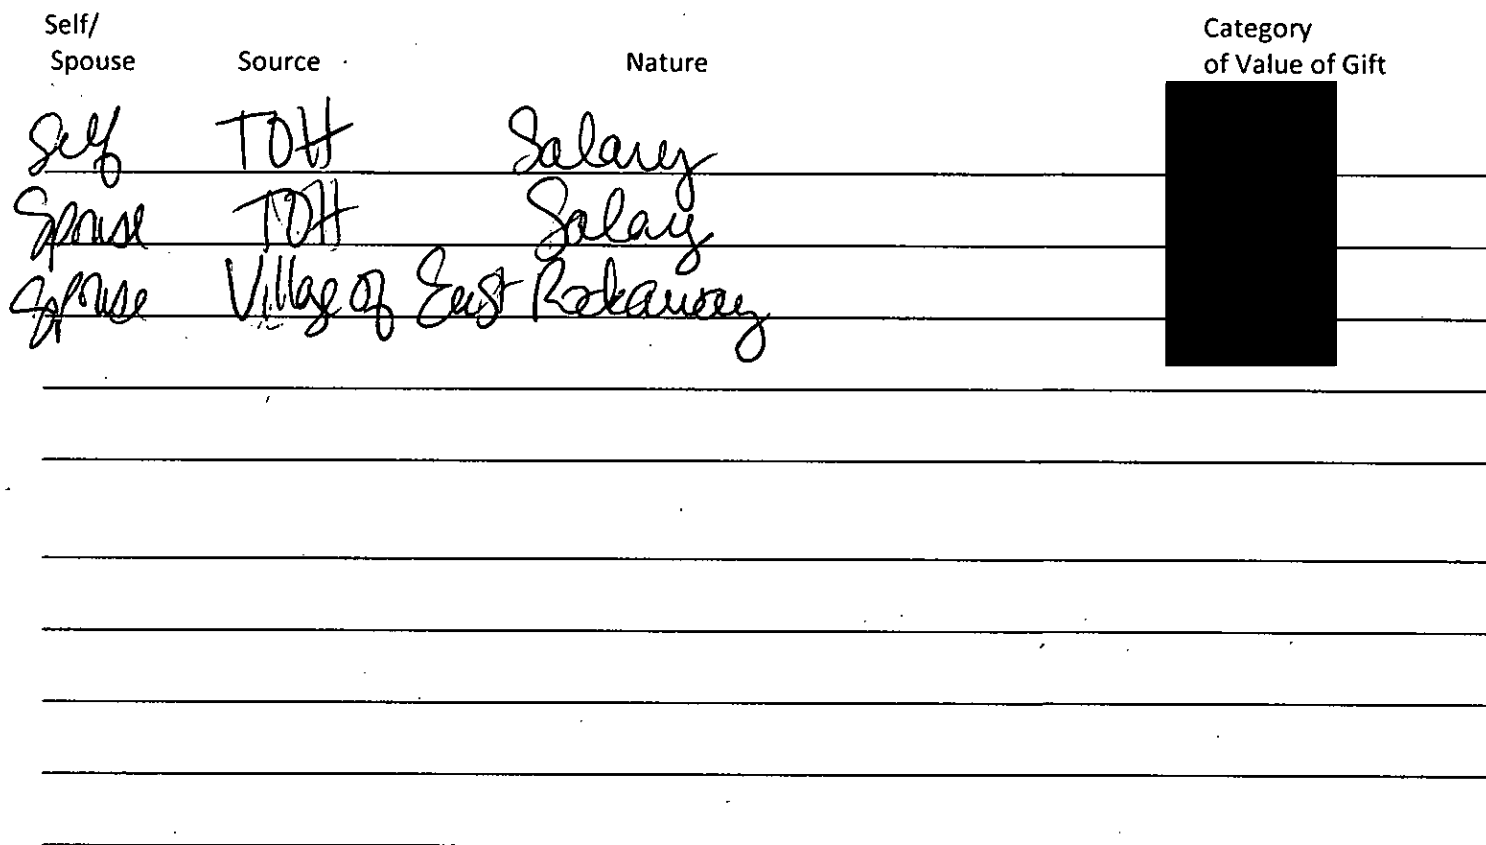 Self/ Category
Spouse Source Nature of Value of Gift
Self TOH Salary
Spouse TOH Salary
Spouse Village of East Rockaway